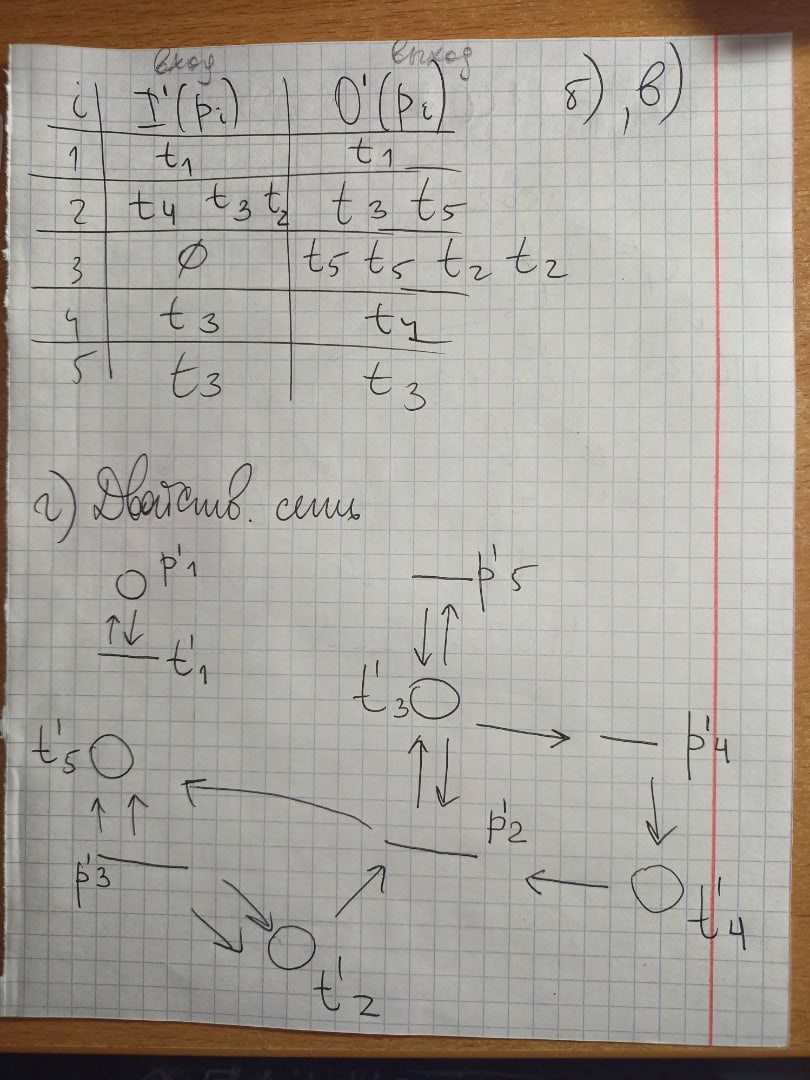 вход выход
i I'(pᵢ) O'(pᵢ) б), в)
1 t₁ t₁
2 t₄ t₃ t₂ t₃ t₅
3 ∅ t₅ t₅ t₂ t₂
4 t₃ t₄
5 t₃ t₃
г) Двойств. сеть
p'₁
p'₅
t'₁
t'₃
t'₅
p'₄
p'₂
p'₃
t'₄
t'₂